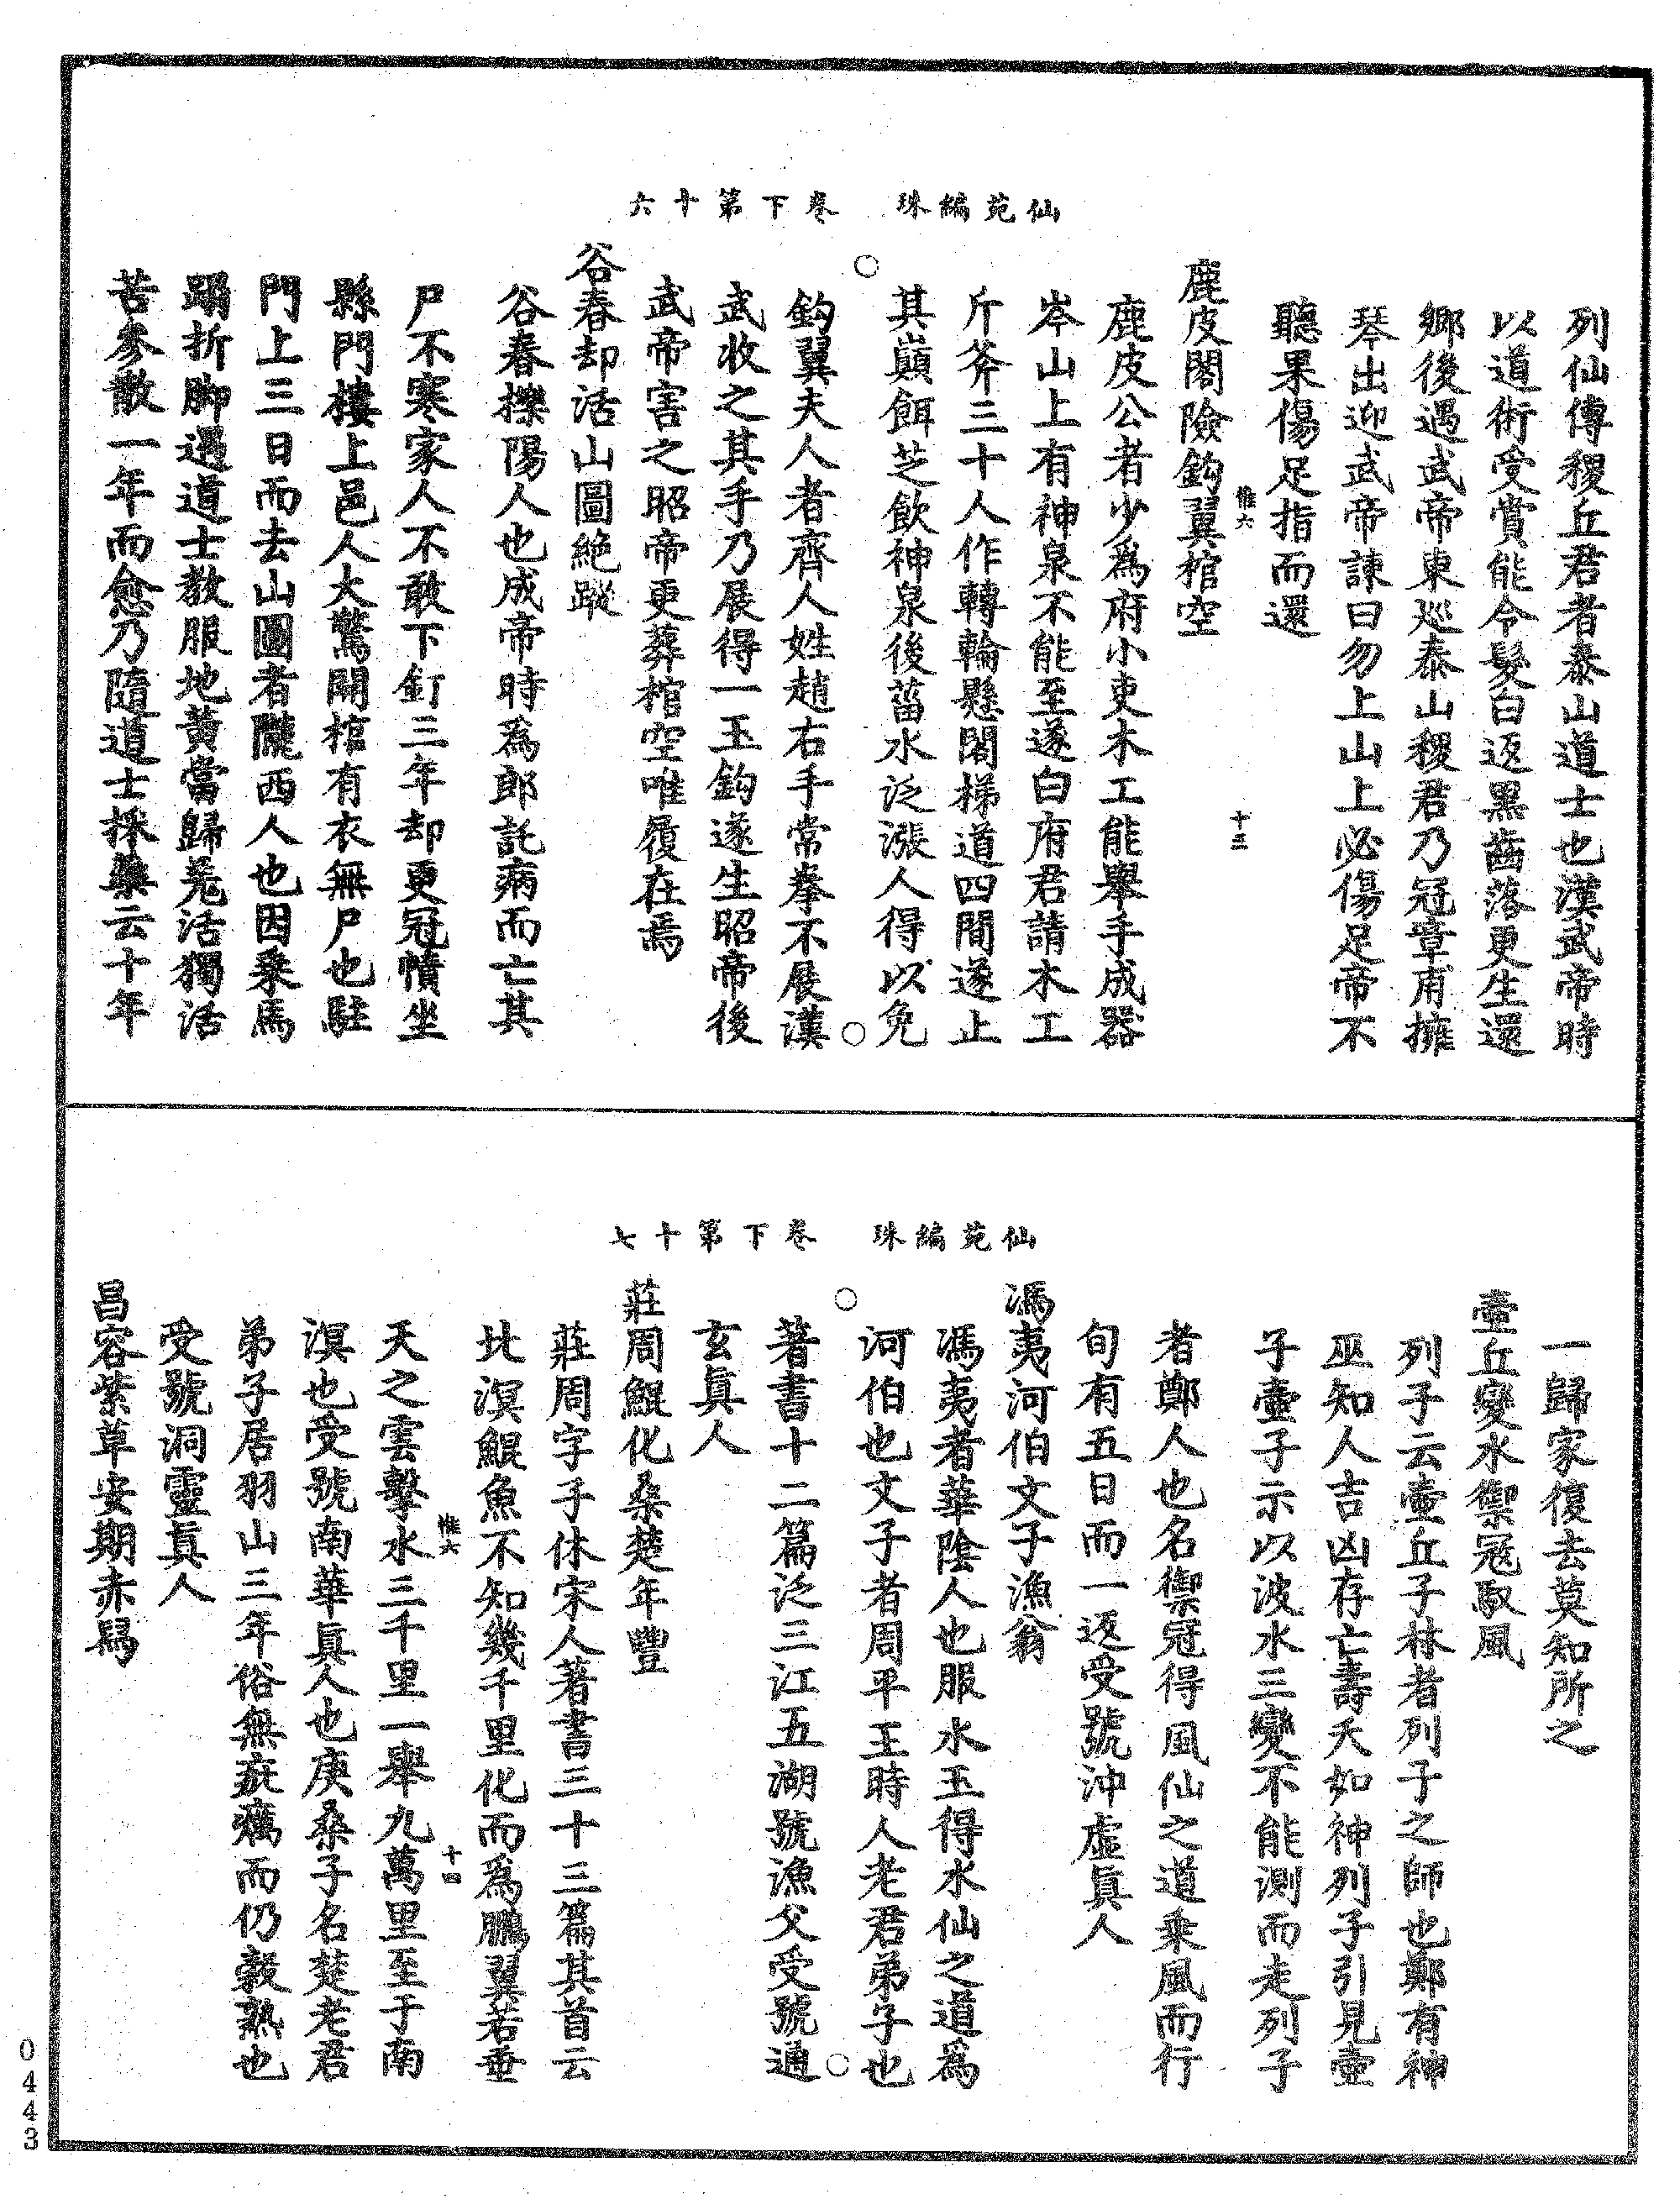 仙苑編珠　卷下第十六
列仙傳稷丘君者泰山道士也漢武帝時
以道術受賞能令髮白返黑齒落更生還
鄉後遇武帝東巡泰山稷君乃冠章甫擁
琴出迎武帝諫曰勿上山上必傷足帝不
聽果傷足指而還
鹿皮閣險鈎翼棺空
惟六　十三
鹿皮公者少爲府小吏木工能舉手成器
岑山上有神泉不能至遂白府君請木工
斤斧三十人作轉輪懸閣梯道四間遂止
其巔餌芝飲神泉後菑水泛漲人得以免
鈎翼夫人者齊人姓趙右手常拳不展漢
武收之其手乃展得一玉鈎遂生昭帝後
武帝害之昭帝更葬棺空唯履在焉
谷春却活山圖絶蹤
谷春擽陽人也成帝時爲郎託病而亡其
尸不寒家人不敢下釘三年却更冠幘坐
縣門樓上邑人大驚開棺有衣無尸也駐
門上三日而去山圖者隴西人也因乘馬
蹋折脚遇道士教服地黃當歸羌活獨活
苦參散一年而愈乃隨道士採藥云十年
仙苑編珠　卷下第十七
一歸家復去莫知所之
壺丘變水禦冦馭風
列子云壺丘子林者列子之師也鄭有神
巫知人吉凶存亡壽夭如神列子引見壺
子壺子示以波水三變不能測而走列子
者鄭人也名禦冦得風仙之道乘風而行
旬有五日而一返受號沖虛眞人
馮夷河伯文子漁翁
馮夷者華陰人也服水玉得水仙之道爲
河伯也文子者周平王時人老君弟子也
著書十二篇泛三江五湖號漁父受號通
玄眞人
莊周鯤化桑楚年豐
莊周字子休宋人著書三十三篇其首云
北溟鯤魚不知幾千里化而爲鵬翼若垂
天之雲擊水三千里一舉九萬里至于南
惟六　十四
溟也受號南華眞人也庚桑子名楚老君
弟子居羽山三年俗無疵癘而仍穀熟也
受號洞靈眞人
昌容紫草安期赤舄
0443